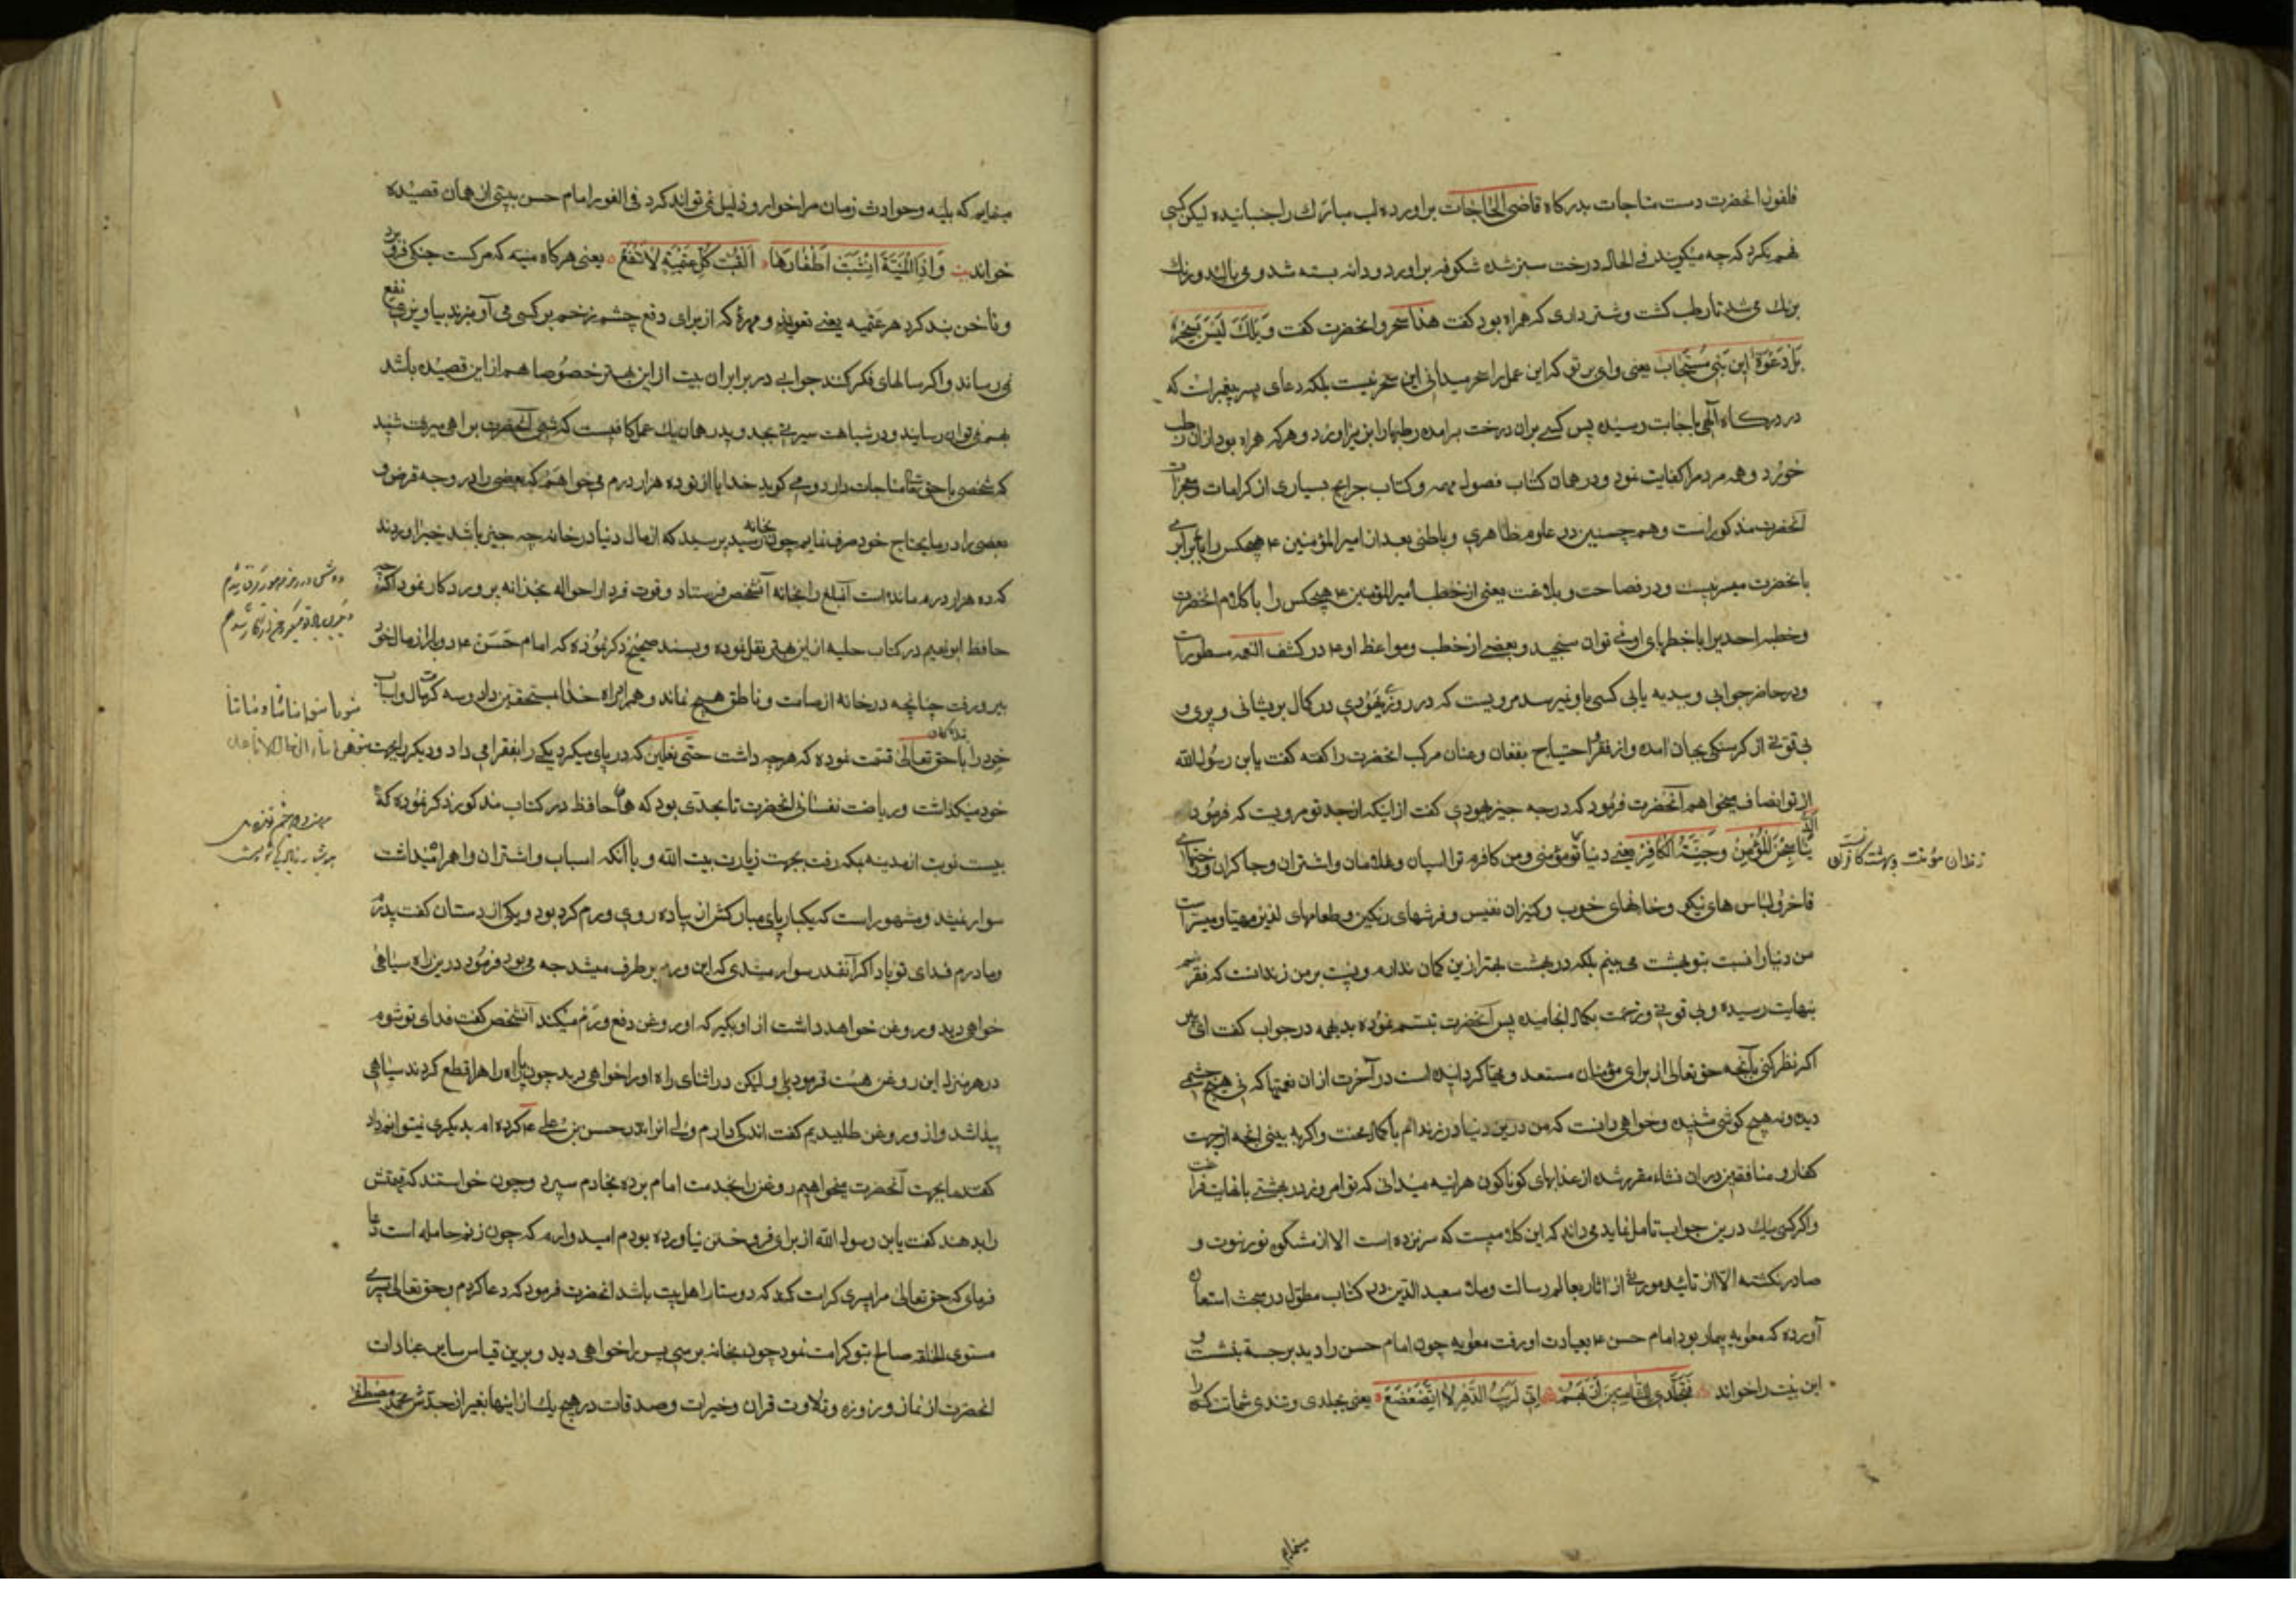 فلفول انحضرت دست مناجات بدرکاه قاضی الحاجات براورده لب مبارک را جنبانیده لیکن کسی
فهم نکرد که چه میکویند فی الحال درخت سبز شده شکوفه براورد و دانه بسته شد و می بالید و رنک
برنک می شد تا رطب کشت و شترداری که همراه بود کفت هذا سحر و انحضرت کفت ویلک لیس بسحر
بل دعوة ابن نبی مستجاب یعنی وای بر تو که این عمل را سحر میدانی این سحر نیست بلکه دعای پسر پیغمبرانست که
در درکاه الهی باجابت رسیده پس کسی بران درخت برامده رطبها را بزیر آورد و هر که همراه بود ازان رطب
خورد و همه مردم را کفایت نمود و در همان کتاب فصول مهمه و کتاب جرایح بسیاری از کرامات و معجزات
آنحضرت مذکور است و همچنین در علوم ظاهری و باطنی بعد از امیرالمؤمنین ع هیچکس را برابری
بانحضرت میسر نیست و در فصاحت و بلاغت یعنی از خطب امیرالمؤمنین ع هیچکس را با کلام انحضرت
و خطبه احدیرا با خطبهای او نمی توان سنجید و بعضی از خطب و مواعظ او ع در کشف الغمه مسطور است
و در حاضر جوابی و بدیهه یابی کسی باو نمیرسد مرویست که در روزی یهودی در کمال پریشانی و پیری و
بی قوتی از کرسنکی بجان امده و از فقر و احتیاج بفغان و عنان مرکب انحضرت را کفته کفت یابن رسول الله
از تو انصاف میخواهم آنحضرت فرمود که در چه چیز یهودی کفت از اینکه از جد تو مرویست که فرمود الد
نیا سجن للمؤمن وجنة الکافر یعنی دنیا تو مؤمنی و من کافرم ترا اسپان و غلامان و اشتران و چاکران و
زندان مؤمنست و بهشت کافرانست
فاخر و لباس های نیکو و خانهای خوب و کنیزان نفیس و فرشهای رنکین و طعامهای لذیذ مهیا و میسر است
من دنیا را نسبت بتو بهشت می بینم بلکه در بهشت بهتر ازین کمان ندارم و نسبت بر من زندانست که فقرم
بنهایت رسیده و بی قوتی و زحمت بکمال انجامیده پس آنحضرت تبسم نموده بدیهه در جواب کفت ای پیر
اکر نظر کنی بآنچه حق تعالی از برای مؤمنان مستعد و مهیا کردانیده است در آخرت ازان نعمتها که نی هیچ چشمی
دیده و نه هیچ کوشی شنیده و خواهی دانست که من درین دنیا در زندانم با کمال محنت و اکر به بینی انچه از جهت
کفار و منافقین دران نشاء مقرر شده از عذابهای کوناکون هراینه میدانی که تو امروز در بهشتی با نهایت فراغت
و اکر کسی نیک درین جواب تامل نماید می داند که این کلامیست که سر نزده است الا از مشکوة نور نبوت و
صادر نکشته الا از تائید موروثی از اثار بعالم رسالت و ملا سعید الدین در کتاب مطول در مبحث استعاره
آورده که معویه بیمار بود امام حسن ع بعیادت او رفت معویه چون امام حسن را دید برجست بنشست و
این بیت را خواند تجلدی للشامتین اریهم انی لریب الدهر لا اتضعضع یعنی بجلدی و تندی شماتت کننده را
مینمایم
مینمایم که بلیه و حوادث زمان مرا خوار و ذلیل نمی تواند کرد فی الفور امام حسن بیتی از همان قصیده
خواند واذا المنیة انشبت اظفارها الفیت کل تمیمة لا تنفع یعنی هرکاه منیه که مرکست چنکی فرو برد
و ناخن بند کرد هر تمیمه یعنی تعویذ و مهره که از برای دفع چشم زخم بر کسی می آویزند بیاویزی نفع
نمی رساند و اکر سالهای فکر کنند جوابی در برابر ان بیت از این بهتر خصوصا هم از این قصیده باشد
بهم نمی توان رسانید و در شباهت سیرت بجد و پدر همان یک عمل کافیست که شبی آنحضرت براهی میرفت شنید
که شخصی با حق تعالی مناجات دارد و می کوید خدایا از تو ده هزار درم می خواهم که بعضی را در وجه قرض و
بعضی را در مایحتاج خود صرف نمایم چون بخانه رسید پرسید که از مال دنیا در خانه چه چیز باشد خبر اوردند
که ده هزار درم مانده است آنمبلغ را بخانه آنشخص فرستاد و قوت فردا را حواله بخزانه پروردکار نمود
حافظ ابونعیم در کتاب حلیه از این هیتی نقل نموده و بسند صحیح ذکر نموده که امام حسن ع دو بار از مال خود
بیرون رفت چنانچه در خانه از صامت و ناطق هیچ نماند و همه را براه خدا بمستحقین داد و سه کرت مال و اسباب
خود را با حق تعالی قسمت نموده که هرچه داشت حتی نعلین که در پای میکرد یکی را بفقرا می داد و دیکر را بجهت
خود میکذاشت و ریاضت نفسانی انحضرت تا بحدی بود که همان حافظ در کتاب مذکور ذکر نموده که
بیست نوبت از مدینه بمکه رفت بجهت زیارت بیت الله و با آنکه اسباب و اشتران و اهرا میداشت
سوار نمیشد و مشهور است که یکبار پای مبارکش از پیاده روی ورم کرد بود و یکی از دوستان کفت پدرم
و مادرم فدای تو باد اکر آنقدر سوار میشدی که این ورم بر طرف میشد چه می بود فرمود در بن راه سیاهی
خواهی دید و روغن خواهد داشت از او بکیر که او روغن دفع ورم میکند آنشخص کفت فدای تو شوم
در هر منزل این روغن هست فرمود بلی ولیکن در اثنای راه او را خواهی دید چون پاره راه را قطع کردند سیاهی
پیدا شد و از و روغن طلبیدیم کفت اندکی دارم ولی انرا نذر حسن بن علی ع کرده ام بدیکری نیتوانم داد
کفتند ما بجهت آنحضرت میخواهیم روغن را بخدمت امام برده بخادم سپرد و چون خواستند که قیمتش
را بدهند کفت یابن رسول الله از برای فروختن نیاورده بودم امیدوارم که چون زنم حامله است دعا
فرمای که حق تعالی مرا پسری کرامت کند که دوستار اهل بیت باشد انحضرت فرمود که دعا کردم و حق تعالی پسری
مستوی الخلقه صالح بتو کرامت نمود چون بخانه برسی پسر را خواهی دید و برین قیاس سایر عبادات
انحضرت از نماز و روزه و تلاوت قران و خیرات و صدقات در هیچ یک از اینها بغیر از جدش محمد مصطفی